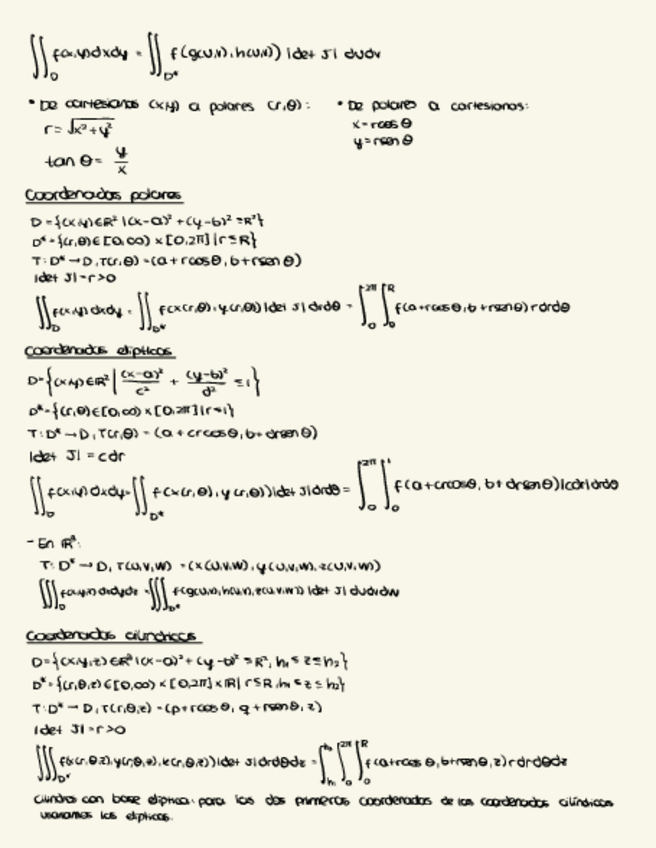 ∬_D f(x,y)dxdy = ∬_D* f(g(u,v), h(u,v)) |det J| dudv
• De cartesianas (x,y) a polares (r,θ):
r = √x²+y²
tan θ = y/x
• De polares a cartesianas:
x=rcosθ
y=rsenθ
Coordenadas polares
D={(x,y)∈ℝ² | (x-a)² + (y-b)² ≤R²}
D*={(r,θ)∈[0,∞) × [0,2π] | r≤R}
T: D* → D, T(r,θ) = (a+rcosθ, b+rsenθ)
|det J|=r>0
∬_D f(x,y)dxdy = ∬_D* f(x(r,θ), y(r,θ)) |det J| drdθ = ∫_0^2π ∫_0^R f(a+rcosθ, b+rsenθ) r drdθ
Coordenadas elípticas
D={(x,y)∈ℝ² | (x-a)²/c² + (y-b)²/d² ≤1}
D*={(r,θ)∈[0,∞) × [0,2π] | r≤1}
T: D* → D, T(r,θ) = (a+crcosθ, b+drsenθ)
|det J| = cdr
∬_D f(x,y)dxdy = ∬_D* f(x(r,θ), y(r,θ)) |det J| drdθ = ∫_0^2π ∫_0^1 f(a+crcosθ, b+drsenθ) |cdr| drdθ
- En ℝ³:
T: D* → D, T(u,v,w) = (x(u,v,w), y(u,v,w), z(u,v,w))
∭_D f(x,y,z) dxdydz = ∭_D* f(g(u,v), h(u,v), z(u,v,w)) |det J| dudvdw
Coordenadas cilíndricas
D={(x,y,z)∈ℝ³ | (x-a)² + (y-b)² ≤R², h₁ ≤ z ≤ h₂}
D*={(r,θ,z)∈[0,∞) × [0,2π] × ℝ | r≤R, h₁ ≤ z ≤ h₂}
T: D* → D, T(r,θ,z) = (p+rcosθ, q+rsenθ, z)
|det J|=r>0
∭_D* f(x(r,θ,z), y(r,θ,z), z(r,θ,z)) |det J| drdθdz = ∫_h₁^h₂ ∫_0^2π ∫_0^R f(a+rcosθ, b+rsenθ, z) r drdθdz
Cilindros con base elíptica: para las dos primeras coordenadas de las coordenadas cilíndricas
usaremos las elípticas.